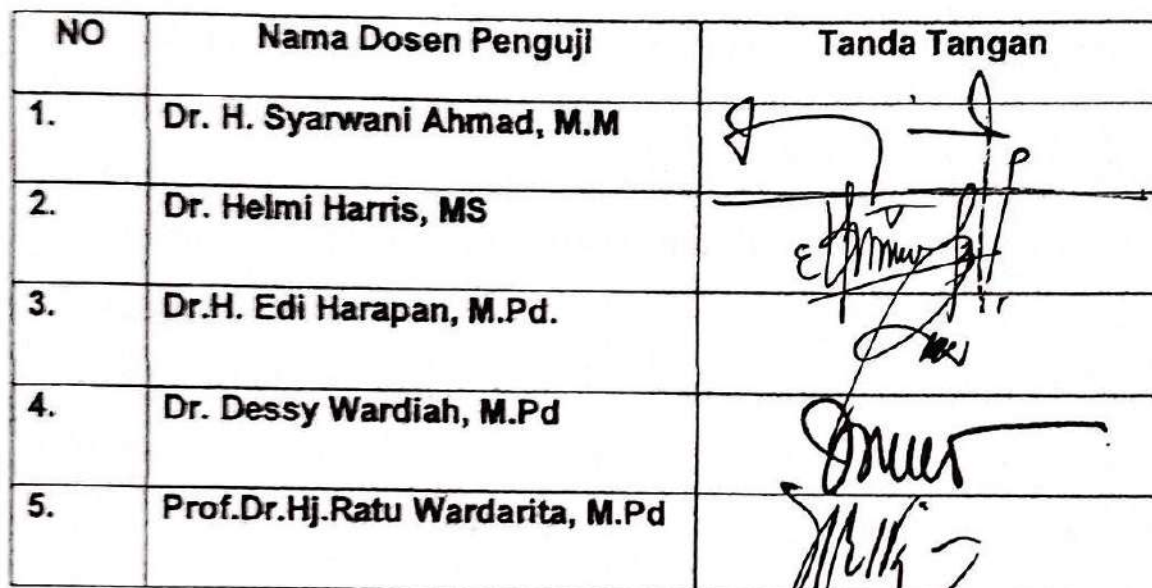 NO Nama Dosen Penguji Tanda Tangan
1. Dr. H. Syarwani Ahmad, M.M
2. Dr. Helmi Harris, MS
3. Dr.H. Edi Harapan, M.Pd.
4. Dr. Dessy Wardiah, M.Pd
5. Prof.Dr.Hj.Ratu Wardarita, M.Pd